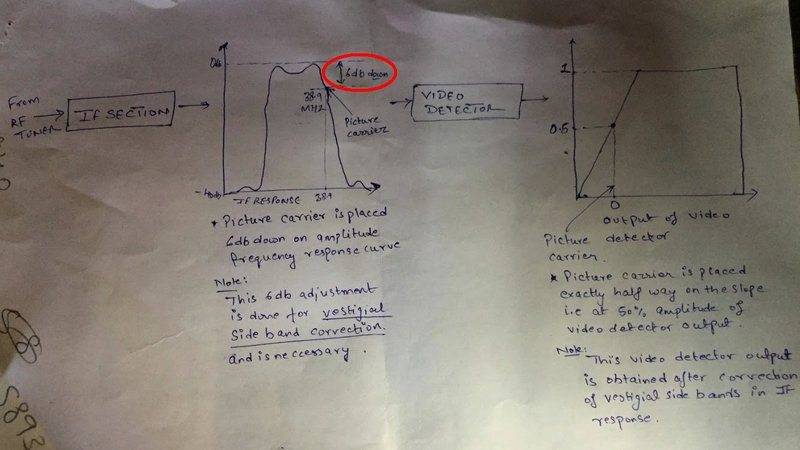 From
RF
TUNER
IF SECTION
0db
6db down
38.9
MHZ
Picture
carrier
-40db
IF RESPONSE
38.9
* Picture carrier is placed
6db down on amplitude
frequency response curve
Note:
This 6db adjustment
is done for vestigial
Side band correction.
and is neccessary.
VIDEO
DETECTOR
1
0.5
0
output of video
detector
Picture
carrier.
* Picture carrier is placed
exactly half way on the slope
i.e at 50% amplitude of
video detector output.
Note:
This video detector output
is obtained after correction
of vestigial side bands in IF
response.
5893